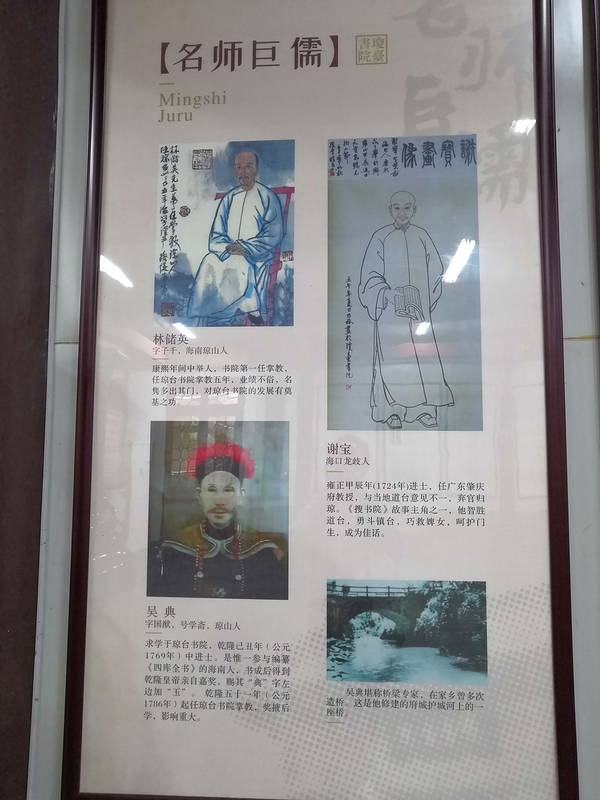 【名师巨儒】
瓊臺書院
Mingshi
Juru
林儲英
字子千，海南琼山人
康熙年间中举人，书院第一任掌教，
任琼台书院掌教五年，业绩不俗，名
隽多出其门，对琼台书院的发展有奠
基之功。
謝寶畫像
谢宝
海口龙歧人
雍正甲辰年(1724年)进士，任广东肇庆
府教授，与当地道台意见不一，弃官归
琼。《搜书院》故事主角之一，他智胜
道台，勇斗镇台，巧救婢女，呵护门
生，成为佳话。
吴 典
字国猷，号学斋，琼山人
求学于琼台书院，乾隆己丑年（公元
1769年）中进士。是惟一参与编纂
《四库全书》的海南人，书成后得到
乾隆皇帝亲自嘉奖，赐其“典”字左
边加“玉”。乾隆五十一年（公元
1786年）起任琼台书院掌教，奖掖后
学，影响重大。
吴典堪称桥梁专家，在家乡曾多次
造桥。这是他修建的府城护城河上的一
座桥。